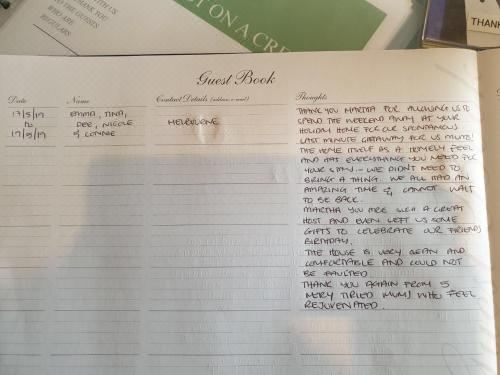 WITH US
THANK YOU
TO THE GUESTS
WHO ARE
REGULARS
ST ON A CRE
THANK
Guest Book
Date Name Contact Details (address, e-mail) Thoughts
17/5/19 EMMA, TINA, MELBOURNE
TO DEE, NICOLE
19/5/19 & CONNIE
THANK YOU MARTHA FOR ALLOWING US TO
SPEND THE WEEKEND AWAY AT YOUR
HOLIDAY HOME FOR OUR SPONTANEOUS
LAST MINUTE GETAWAY FOR US MUMS!
THE HOME ITSELF AS A HOMELY FEEL
AND HAS EVERYTHING YOU NEED FOR
YOUR STAY - WE DIDN'T NEED TO
BRING A THING. WE ALL HAD AN
AMAZING TIME & CANNOT WAIT
TO BE BACK.
MARTHA YOU ARE SUCH A GREAT
HOST AND EVEN LEFT US SOME
GIFTS TO CELEBRATE OUR FRIENDS
BIRTHDAY.
THE HOUSE IS VERY CLEAN AND
COMFORTABLE AND COULD NOT
BE FAULTED
THANK YOU AGAIN FROM 5
VERY TIRED MUMS WHO FEEL
REJUVENATED.